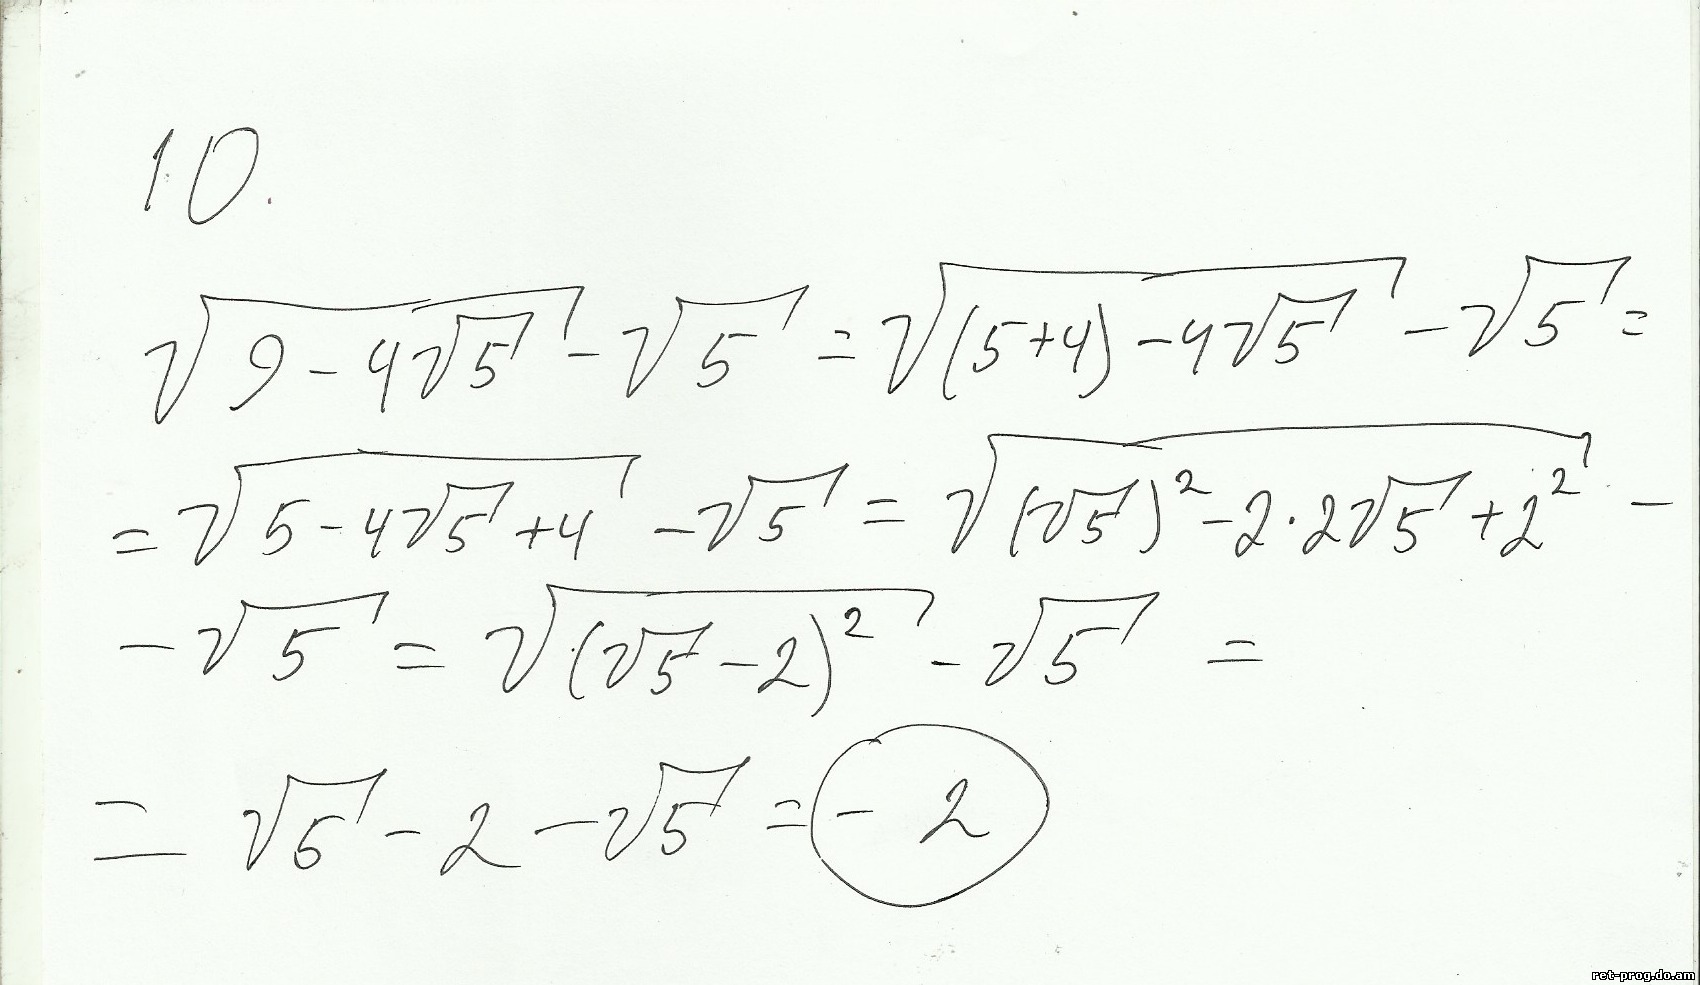 10.
√(9 - 4√5) - √5 = √((5+4) - 4√5) - √5 =
= √(5 - 4√5 + 4) - √5 = √((√5)² - 2·2√5 + 2²) -
- √5 = √((√5 - 2)²) - √5 =
= √5 - 2 - √5 = - 2
ret-prog.do.am